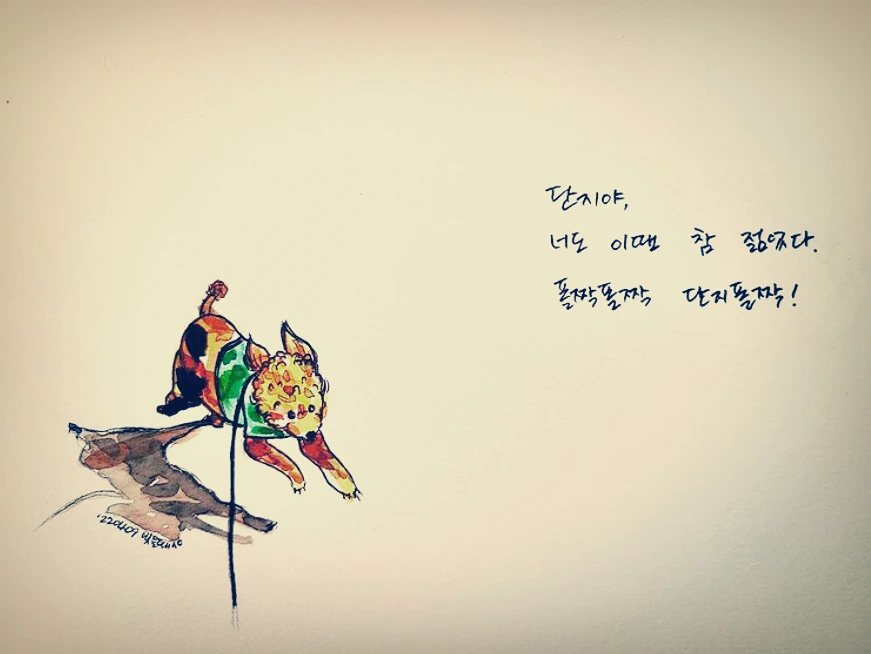 단지야,
너도 이때 참 젊었다.
폴짝폴짝 단지폴짝!
'220409